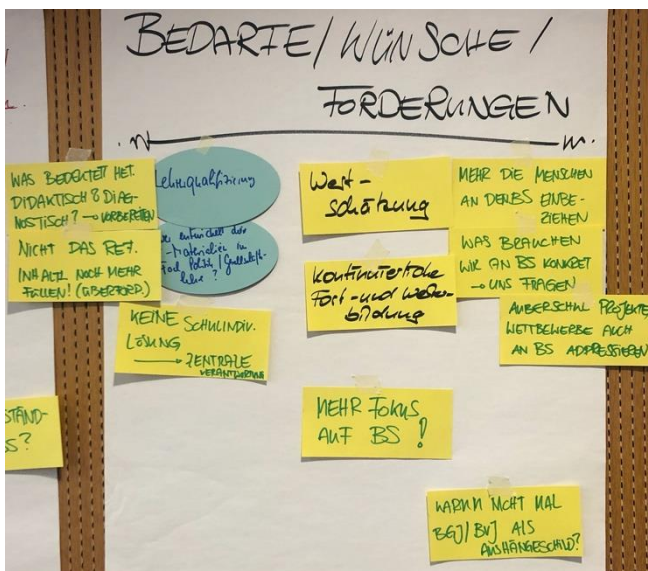 BEDARFE/WÜNSCHE/
FORDERUNGEN
WAS BEDEUTET HET.
DIDAKTISCH? DIAG-
NOSTISCH? → VORBEREITEN
NICHT DAS REF.
INHALTL NOCH MEHR
FÜLLEN! (ÜBERFORD.)
Lehrerqualifizierung
entwickelt
-Materialien in
Fach Politik/
lehre?
KEINE SCHULINDIV.
LÖSUNG
→ ZENTRALE
VERANTWORTUNG
Wert-
schätzung
Kontinuierliche
Fort- und Weiter-
bildung
MEHR FOKUS
AUF BS!
MEHR DIE MENSCHEN
AN DEN BS EINBE-
ZIEHEN
WAS BRAUCHEN
WIR AN BS KONKRET
→ UNS FRAGEN
AUßERSCHUL PROJEKTE,
WETTBEWERBE AUCH
AN BS ADDRESSIEREN
WARUM NICHT MAL
BGJ/BVJ ALS
AUSHÄNGESCHILD?
STÄND-
S?